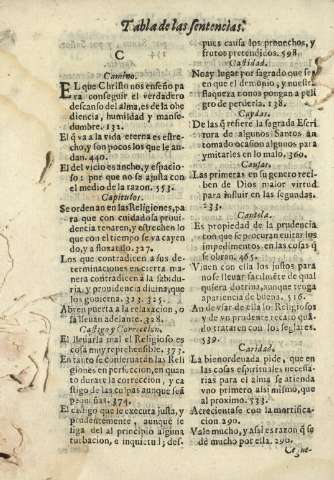 Tabla de las sentencias.
C
Camino.
EL que Christo nos enseño pa
ra conseguir el verdadero
descanso del alma, es de la obe
diencia, humildad y manse-
dumbre. 132.
El q̃ va a la vida eterna es estre-
cho, y son pocos los que le an-
dan. 440.
El del vicio es ancho, y espacio-
so: por que no se ajusta con
el medio de la razon. 553.
Capitulos.
Se ordenan en las Religiones, pa
ra que con cuidadosa prouí-
dencia reparen, y estrechen lo
que con el tiempo se va cayen
do, y afloxando. 327.
Los que contradicen a sus de-
terminaciones en cierta manera
contradicen à la sabidu-
ria, y prouidencia diuina, que
los gouierna. 323. 325.
Abren puerta a la relaxacion, o
la lleuan adelante. 328.
Castigo y Correccion.
El lleuarla mal el Religioso es
cosa muy reprehensible. 373.
En tanto se conseruaràn las Reli
giones en perfeccion, en quan
to durare la correccion, y ca
stigo de las culpas aunque sea
pequeñas. 374.
El castigo que se executa justa, y
prudentemente, aunque se
siga del al principio alguna
turbacion, e inquietud; des-
pues causa los prouechos, y
frutos pretendidos. 598.
Castidad.
No ay lugar por sagrado que sea
en que el demonio, y nuestra
flaqueza no nos pongan a peli-
gro de perderla. 138.
Cuydar.
De las q̃ refiere la sagrada Escri
tura de algunos Santos an
tomado ocasion algunos para
ymitarles en lo malo, 360.
Causas.
Las primeras en su genero reci
ben de Dios maior virtud
para influir en las segundas.
233.
Cautela.
Es propiedad de la prudencia
con que se procuran euitar los
impedimentos en las cosas q̃
se obran. 465.
Viuen con ella los justos para
no se lleuar facilmẽte de qual
quiera dotrina, aunque tenga
apariencia de buena. 516.
An de vsar de ella los Religiosos
y de vn prudente recato quã-
do trataren con los seglares.
539.
Caridad.
La bienordenada pide, que en
las cosas espirituales necesa-
rias para el alma se atienda
vno primero a si mismo, que
al proximo. 533.
Acrecientase con la mortifica-
cion. 290.
Vale mucho, y assi es razon q̃ se
dè mucho por ella. 290.